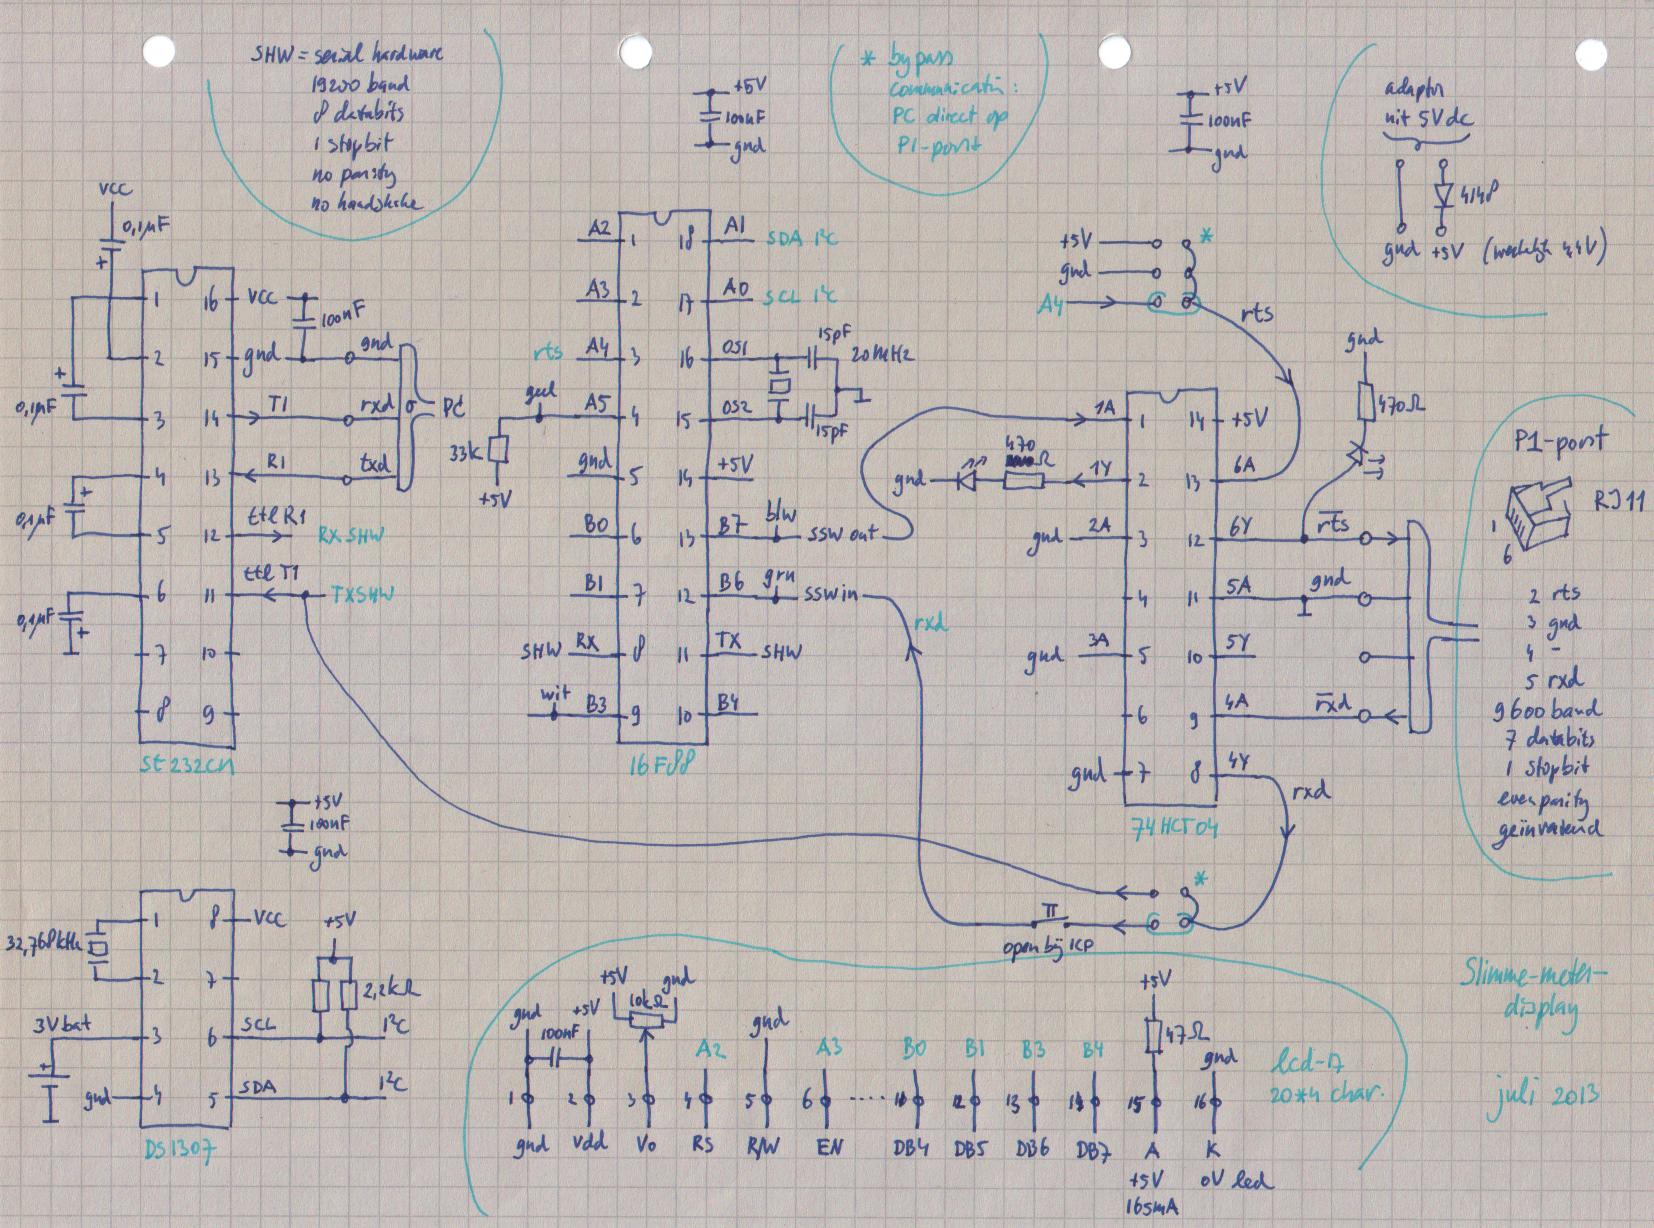 SHW = serial hardware
19200 baud
8 databits
1 stopbit
no parity
no handshake
+5V
100nF
gnd
* bypass
communicatie:
PC direct op
P1-poort
+5V
100nF
gnd
adaptor
uit 5Vdc
4148
gnd +5V (werkelijk 4,4V)
VCC
0,1µF
+
1
2
+
0,1µF
3
4
+
0,1µF
5
6
0,1µF
+
7
8
16 VCC
100nF
15 gnd
gnd
14 T1
rxd
13 R1
txd
PC
12 ttl R1
RX SHW
11 ttl T1
TXSHW
10
9
st232cn
A2 1
A3 2
rts A4 3
geel A5 4
33k
+5V
gnd 5
B0 6
B1 7
SHW RX 8
wit B3 9
18 A1 SDA I²C
17 A0 SCL I²C
16 OS1
15pF
20MHz
15 OS2
15pF
14 +5V
13 B7 blw SSW out
12 B6 grn SSW in
11 TX SHW
10 B4
16F88
rxd
+5V
gnd
A4
*
rts
gnd
470Ω
1A 1
gnd
470
Ω
1Y 2
gnd 2A 3
4
gnd 3A 5
6
gnd 7
14 +5V
13 6A
12 6Y rts
11 5A gnd
10 5Y
9 4A rxd
8 4Y
rxd
74HCT04
P1-poort
RJ11
1
6
2 rts
3 gnd
4 -
5 rxd
9600 baud
7 databits
1 stopbit
even parity
geïnverteerd
*
open bij ICP
+5V
100nF
gnd
32,768kHz
1
2
3V bat
3
gnd 4
8 VCC
7
+5V
2,2kΩ
6 SCL I²C
5 SDA I²C
DS1307
gnd
100nF
+5V
+5V
10kΩ
gnd
gnd
A2
A3
B0
B1
B3
B4
+5V
47Ω
gnd
1 2 3 4 5 6 ..... 12 13 14 15 16
gnd Vdd Vo RS R/W EN DB4 DB5 DB6 DB7 A K
+5V
165mA
0V led
20*4 char.
Slimme-meter-
display
juli 2013